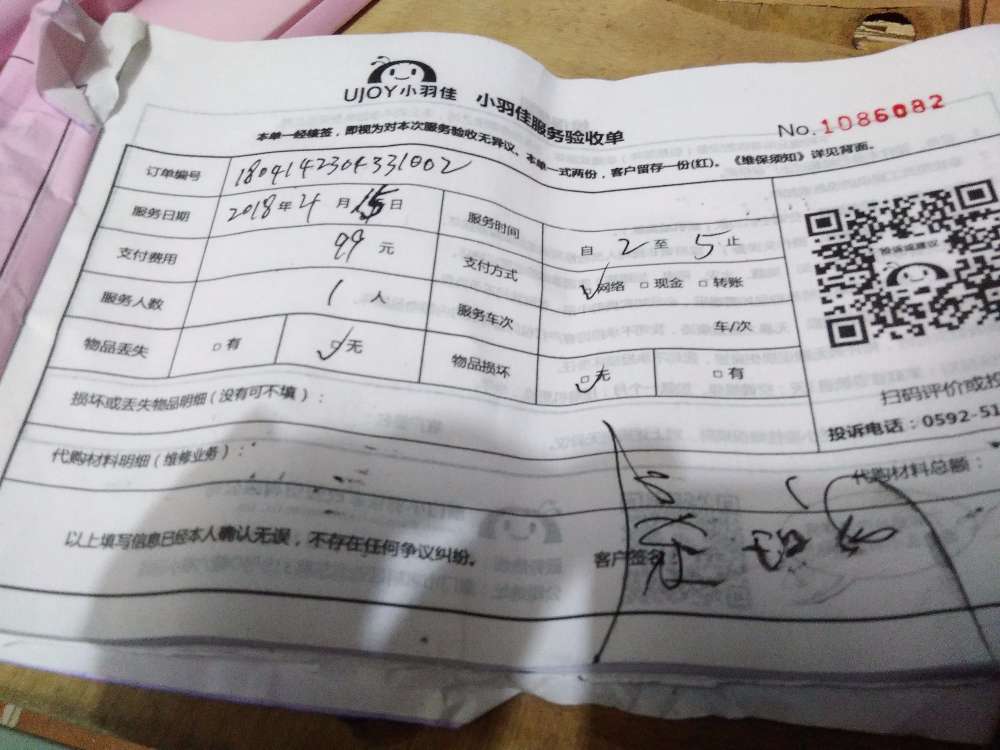 UJOY小羽佳 小羽佳服务验收单
No.1086082
本单一经接签，即视为对本次服务验收无异议、本单一式两份，客户留存一份(红)。《维保须知》详见背面。
订单编号 180414230433l002
服务日期 2018年4月15日 服务时间 自2至5止
支付费用 99元 支付方式 网络 现金 转账
服务人数 1人 服务车次 车/次
物品丢失 有 无 物品损坏 无 有
投诉或建议
扫码评价或投
投诉电话：0592-51
损坏或丢失物品明细(没有可不填)：
代购材料明细(维修业务)： 代购材料总额：
以上填写信息已经本人确认无误，不存在任何争议纠纷。 客户签名